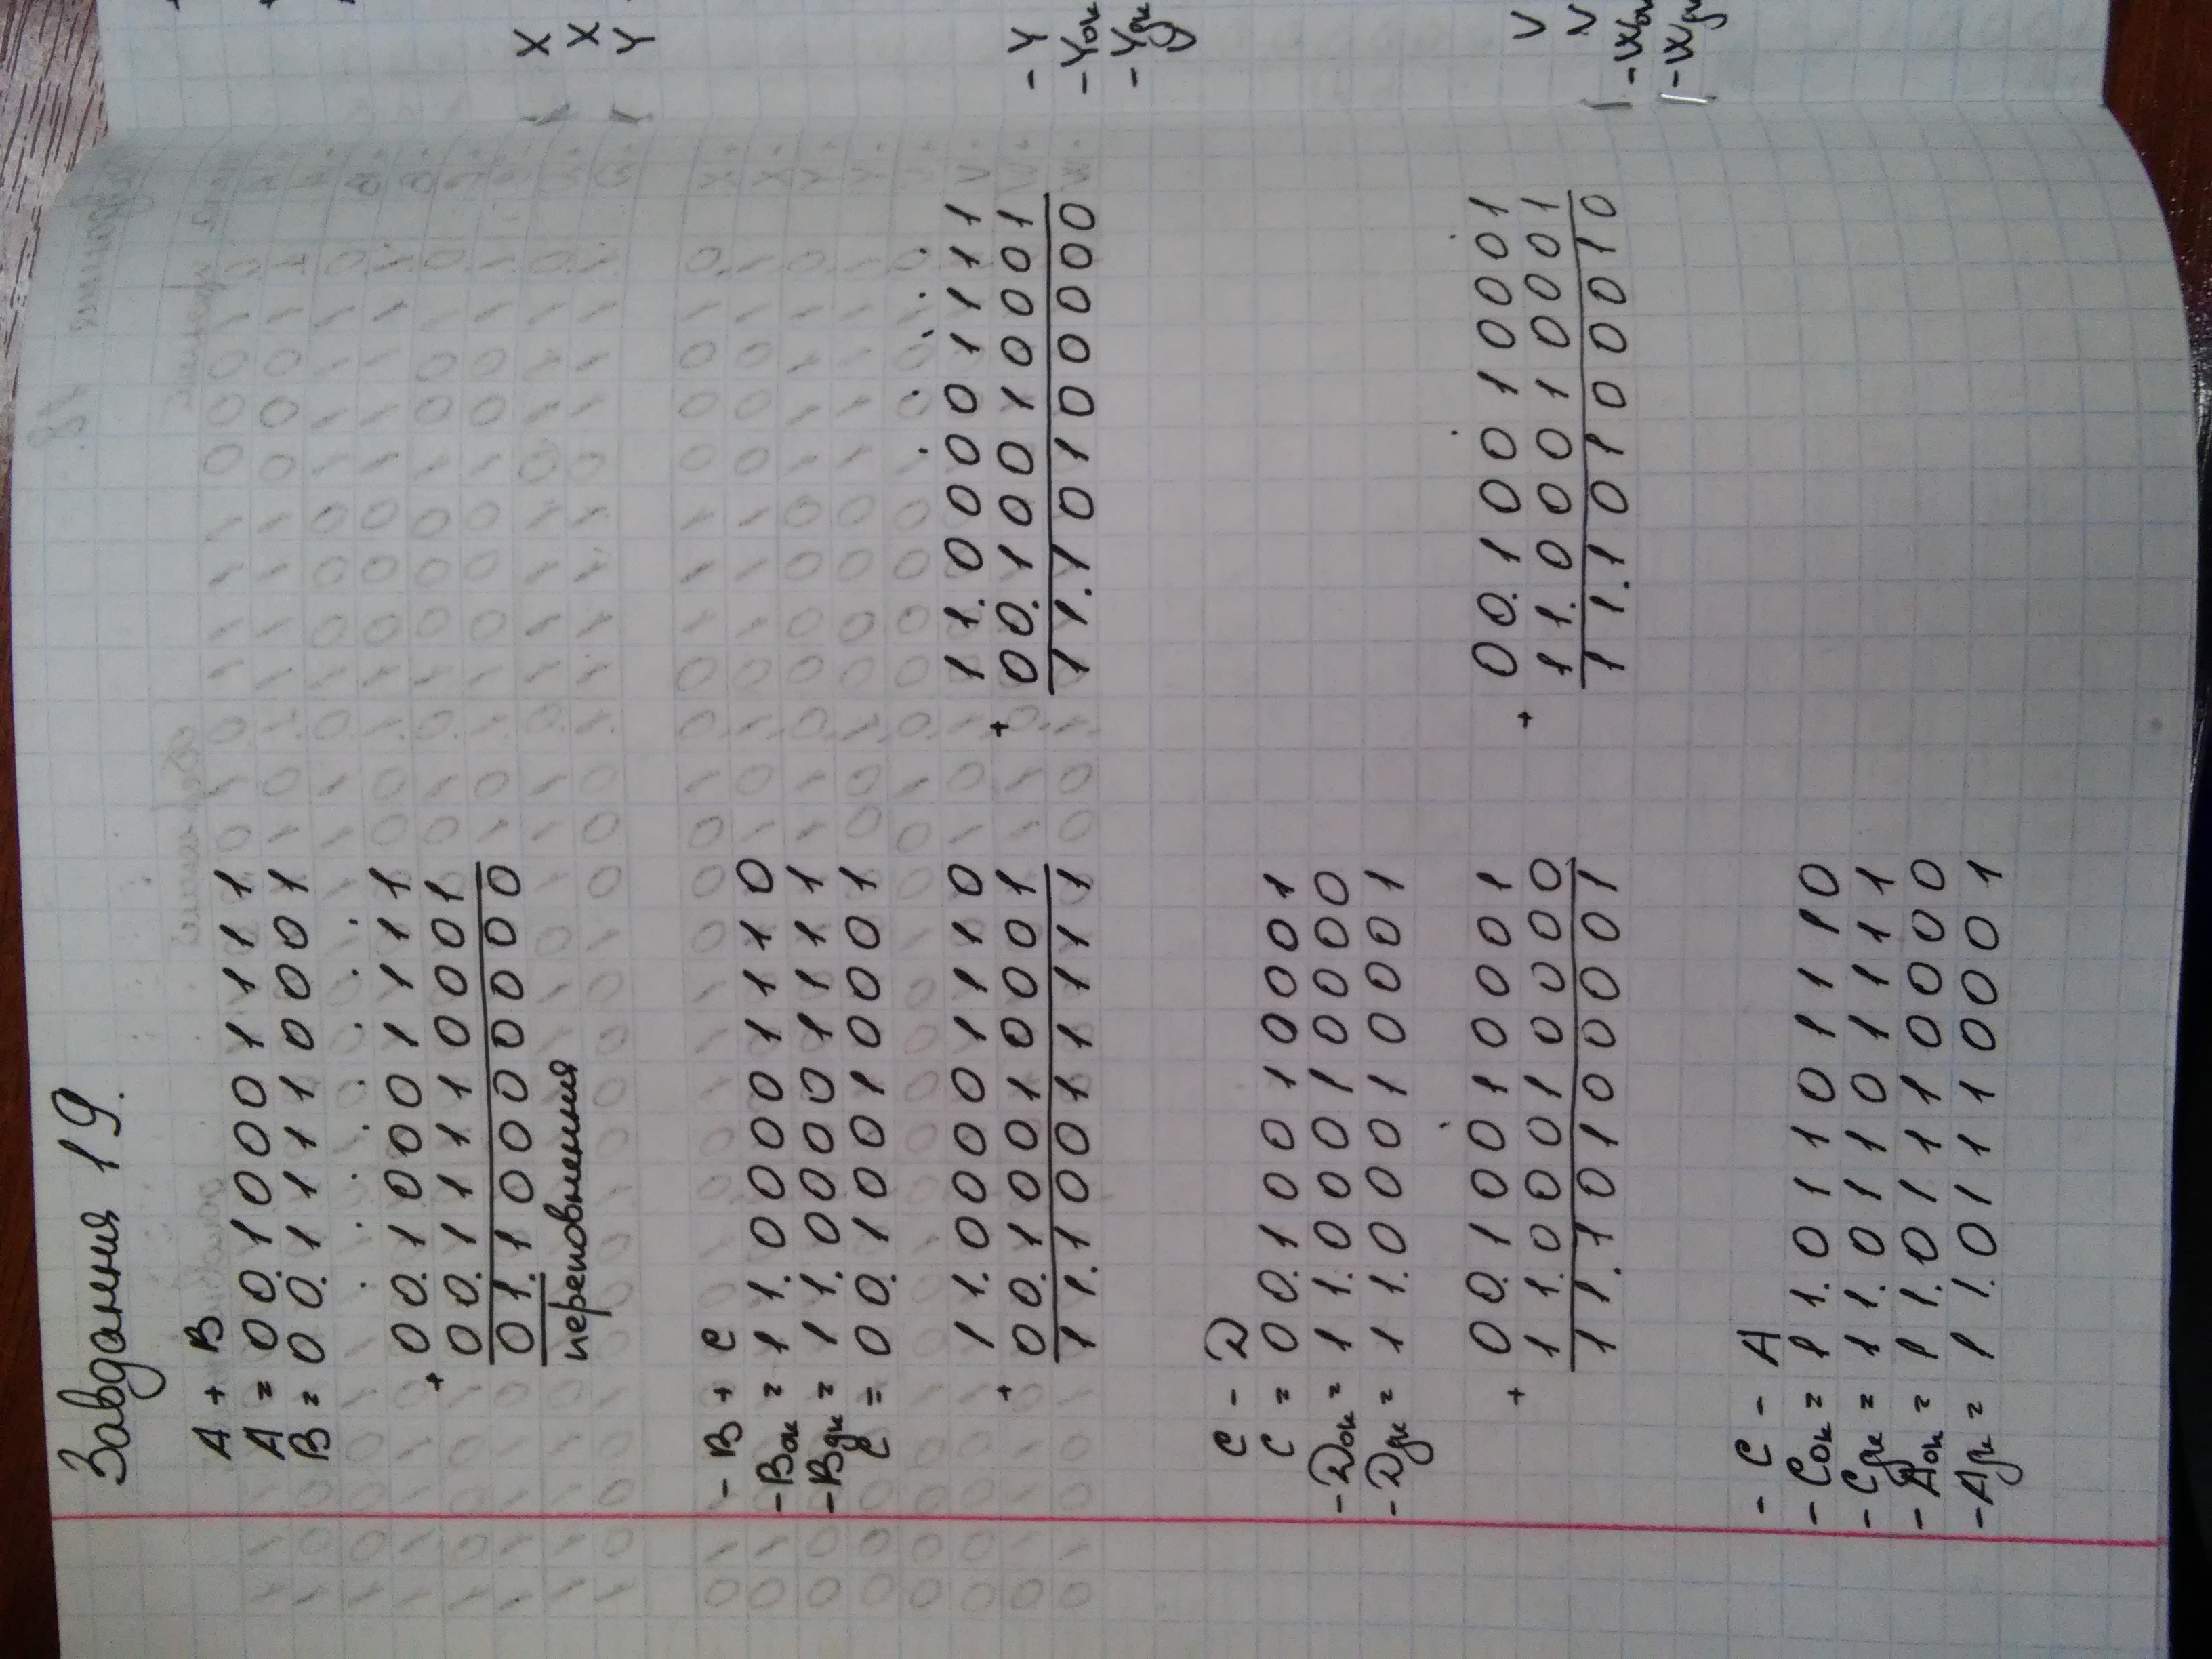 Завдання 19.
A + B
A = 00.10001111
B = 00.11110001
00.10001111
+
00.11110001
01.10000000
переповнення
- B + C
-Bок = 11.00001110
-Bдк = 11.00001111
C = 00.10010001
11.00001110
+
00.10010001
11.10011111
11.00001111
+
00.10010001
11.10100000
C - D
C = 00.10010001
-Dок = 11.00010000
-Dдк = 11.00010001
00.10010001
+
11.00010000
11.10100001
00.10010001
+
11.00010001
11.10100010
- C - A
-Cок = 11.01101110
-Cдк = 11.01101111
-Aок = 11.01110000
-Aдк = 11.01110001
X
X
Y
- Y
-Yок
-Yдк
V
V
V
-Wок
-Wдк